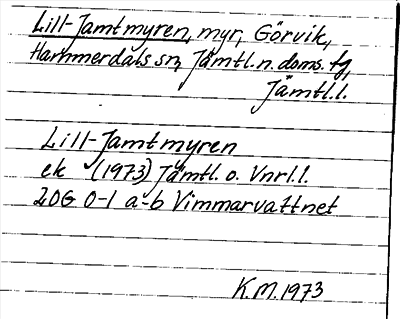 Lill-Jamtmyren, myr, Görvik,
Hammerdals sn, Jämtl. n. doms. tg,
Jämtl. l.
Lill-Jamtmyren
ek (1973) Jämtl. o. Vnrl. l.
20G 0-1 a-b Vimmarvattnet
K.M. 1973